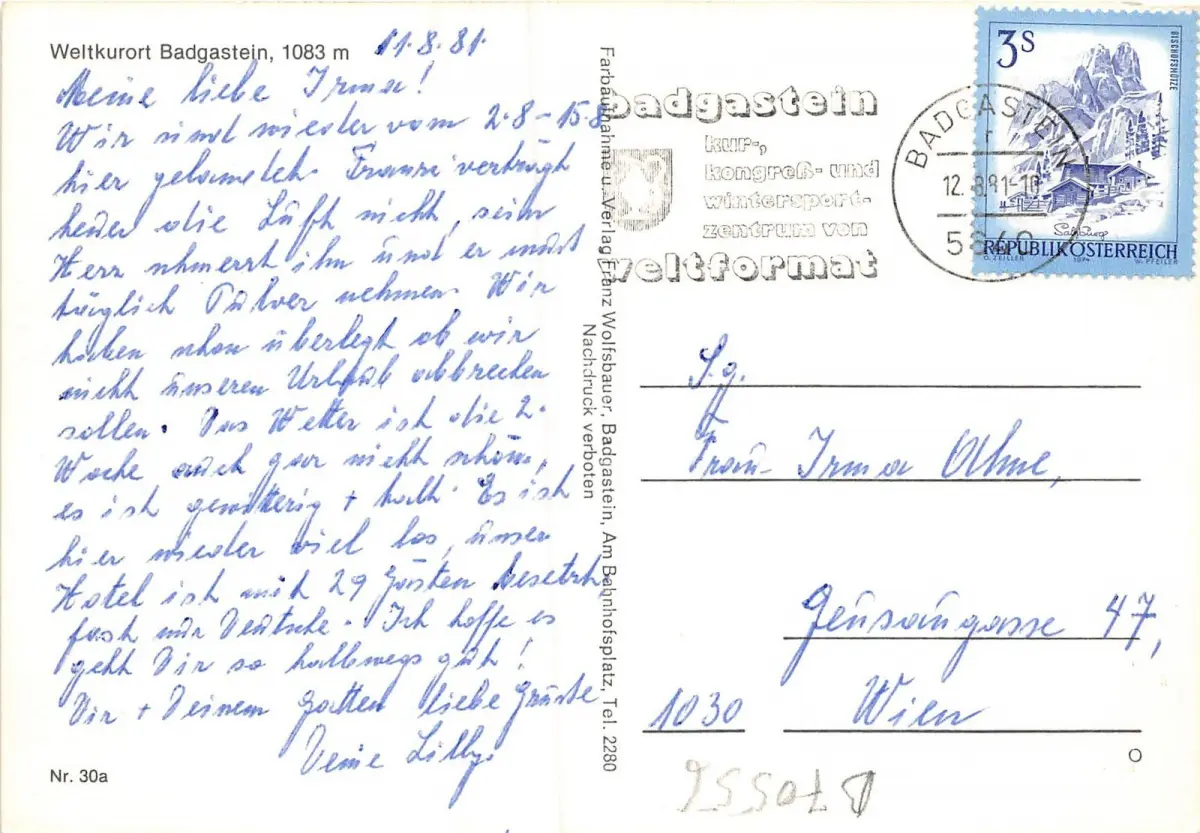 Weltkurort Badgastein, 1083 m
11.8.81.
Meine liebe Irma!
Wir sind wieder vom 2.8-15.8
hier gelandet. Franzi verträgt
leider die Luft nicht, sein
Herz schmerzt ihn und er muß
täglich Pulver nehmen. Wir
haben schon überlegt ob wir
nicht unseren Urlaub abbrechen
sollen. Das Wetter ist die 2.
Woche auch gar nicht schön,
es ist gewitterig + kalt. Es ist
hier wieder viel los, unser
Hotel ist mit 29 Gästen besetzt,
fast nur Deutsche. Ich hoffe es
geht Dir so halbwegs gut!
Dir + Deinem Gatten liebe Grüße
Deine Lilly.
Nr. 30a
Farbaufnahme u. Verlag Franz Wolfsbauer, Badgastein, Am Bahnhofsplatz, Tel. 2280
Nachdruck verboten
badgastein
kur-,
kongreß- und
wintersport-
zentrum von
weltformat
BADGASTEIN
r
12.-8.81-10
5640
3 S
BISCHOFSMÜTZE
Salzburg
REPUBLIK ÖSTERREICH
O. ZEILLER 1974 W. PFEILER
S.g.
Frau Irma Ohme,
Geusaugasse 47,
1030 Wien
B 70555